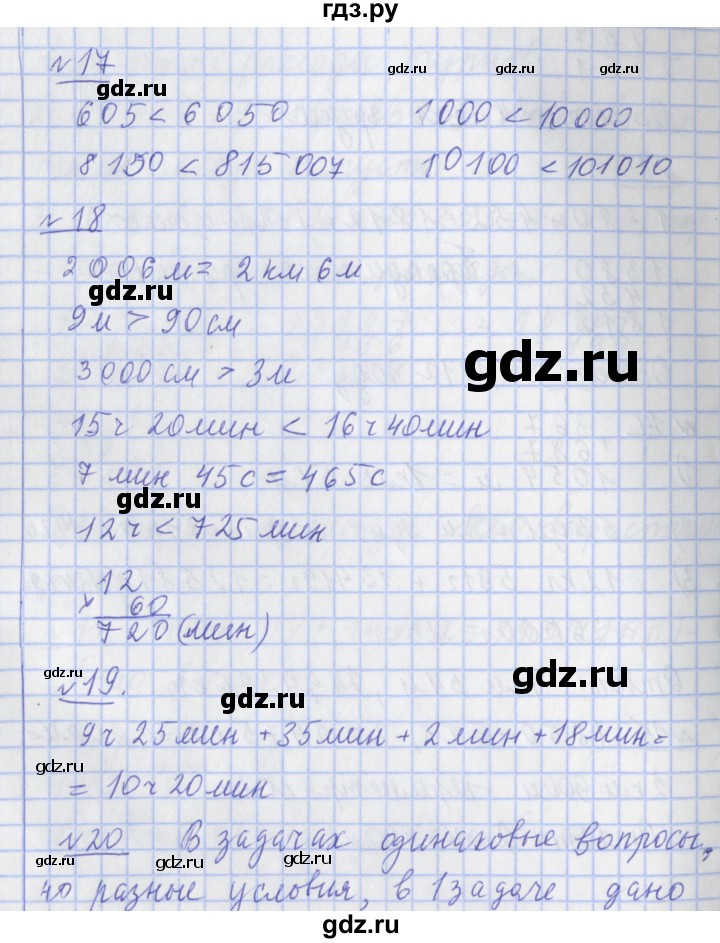 гдз.ру
№17
gdz.ru
605 < 6 050 1000 < 10000
8150 < 815 007 10100 < 101010
gdz.ru
№18
2 006 м = 2 км 6 м
gdz.ru
9 м > 90 см
3 000 см > 3 м
gdz.ru
15 ч 20 мин < 16 ч 40 мин
7 мин 45 с = 465 с
gdz.ru
12 ч < 725 мин
12
× 60
720 (мин)
gdz.ru
gdz.ru
№19.
gdz.ru
9 ч 25 мин + 35 мин + 2 мин + 18 мин =
gdz.ru
= 10 ч 20 мин
gdz.ru
№20 В задачах одинаковые вопросы,
gdz.ru
gdz.ru
но разные условия, в 1 задаче дано
gdz.ru